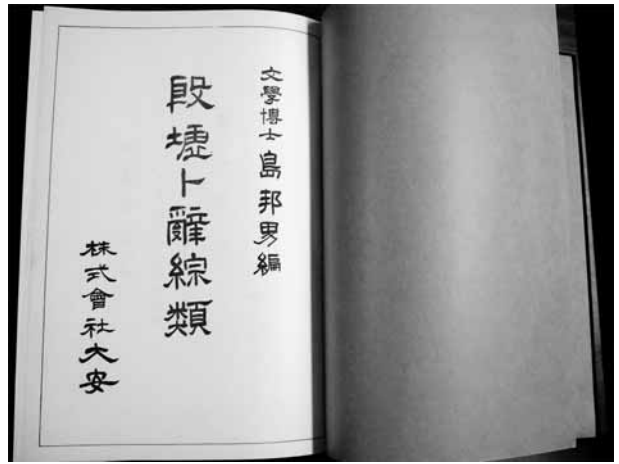 文學博士 島邦男編
殷墟卜辭綜類
株式會社大安